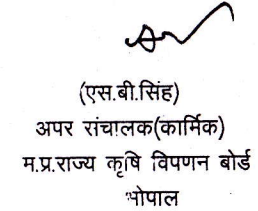 (एस.बी.सिंह)
अपर संचालक(कार्मिक)
म.प्र.राज्य कृषि विपणन बोर्ड
भोपाल